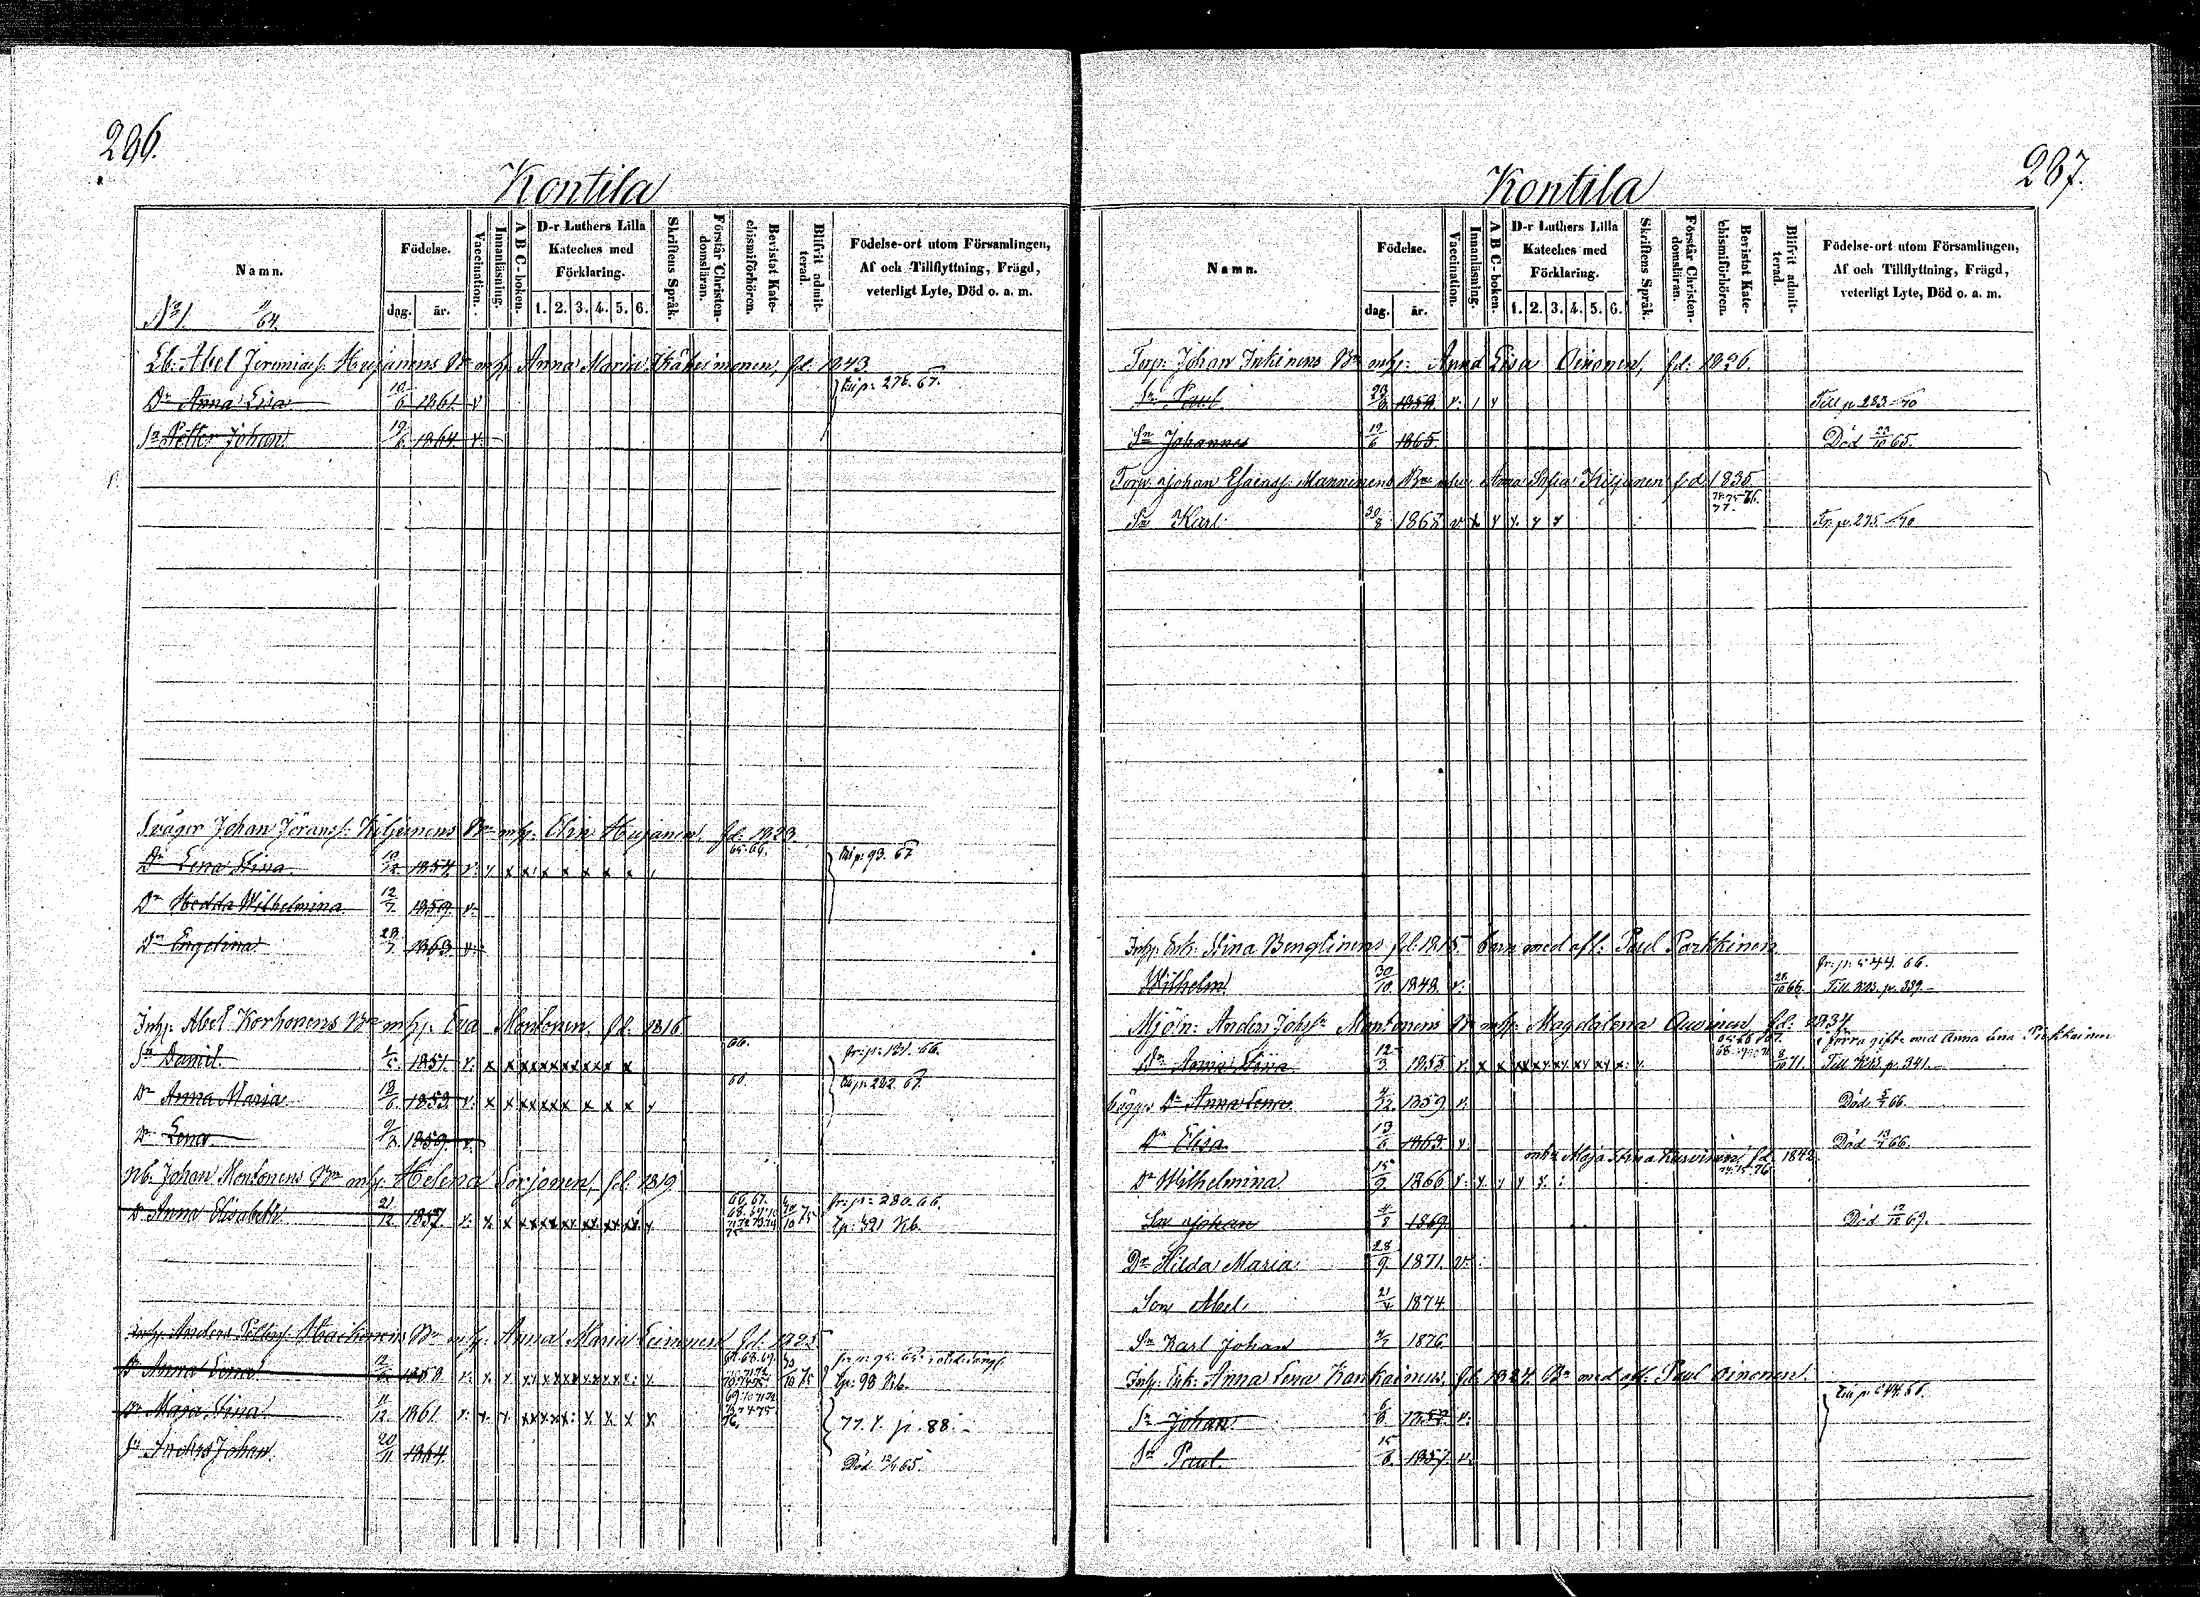 286.
Kontila
Namn.
Födelse.
dag.
år.
Vaccination.
Innanläsning.
A B C-boken.
D-r Luthers Lilla
Kateches med
Förklaring.
1. 2. 3. 4. 5. 6.
Skriftens Språk.
Förstår Christen-
domsläran.
Bevistat Kate-
chismiförhören.
Blifvit admit-
terad.
Födelse-ort utom Församlingen,
Af och Tillflyttning, Frägd,
veterligt Lyte, Död o. a. m.
№ 1.
64.
Lb. Abel Jeremiass. Husanens Bn m. hu: Anna Maria Käkeimonen, fd: 1843
Dr Anna Lisa 10/6 1861. v
p: 276. 67.
Sn Petter Johan 19/6 1864 v
Svåger Johan Jöranss: Kiljunens Bn m hu: Elin Husanen, fd: 1823.
65. 66.
Dr Lena Stina 10/12 1854 v: x x x x x x x x
p: 93. 67
Dr Hedda Wilhelmina 12/7 1859 v:
Dr Engelina 29/7 1863 v:
Inh: Abel Korhonens Bn m hu: Eva Montonen, fd. 1816
66.
Sn Daniel 1851 v: x x x x x x x x x x
fr: p: 131. 66.
Dr Anna Maria 18/6 1853 v: x x x x x x x x x
p: 222 67.
Dr Lena 9/8 1859 v.
Nb. Johan Montonens Bn m hu: Helena Sorjonen, fd. 1819
Dr Anna Elisabeth 21/12 1857 v: x x x x x x x x x x
66. 67.
68. 69. 70
71 72 73 74
75
fr: p: 280. 66.
321 Kb.
Inh: Anders Petters: Hackonens Bn m hu: Anna Maria Leinonen fd: 1825
Dr Anna Lena 12/6 1858 v: x x x x x x x x x x
67. 68. 69.
98 Kb.
Dr Maja Stina 11/12 1861 v: x x x x x x x x x x
69. 70 71 72
73 74 75
76.
77. p. 88.
Sn Anders Johan 20/11 1864
Död 65.
287.
Kontila
Namn.
Födelse.
dag.
år.
Vaccination.
Innanläsning.
A B C-boken.
D-r Luthers Lilla
Kateches med
Förklaring.
1. 2. 3. 4. 5. 6.
Skriftens Språk.
Förstår Christen-
domsläran.
Bevistat Kate-
chismiförhören.
Blifvit admit-
terad.
Födelse-ort utom Församlingen,
Af och Tillflyttning, Frägd,
veterligt Lyte, Död o. a. m.
Torp: Johan Inkinens Bn m hu: Anna Lisa Oinonen, fd: 1826.
Sn Paul 1858 v:
Till p 283 /70
Sn Johannes 19/6 1865.
Död 23/10 65.
Torp: Johan Esaiass: Manninens Bn m hu: Anna Sofia Kiljunen fd 1835
74 75 76.
77.
Sn Karl 30/8 1868 v x x x x x
Fr. p. 275 /70
Inh: Enk: Stina Bengtinens fd: 1815 barn med afl: Paul Parkkinen
fr: p: 544. 66.
Wilhelm 30/10 1848. v. 28/10 66.
Till Kb. p. 339.
Mjön: Anders Johss: Montonens Bn m hu: Magdalena Auvinen fd: 1834
i förra gifte med Anna Lena Pirkkainen
65 66 67
Dr Anna Stina 12/3 1855 v: x x x x x x x x x 8/10 71.
Till Kb. p. 341.
Dr Anna Lena 4/12 1859 v:
Död 5/4 66.
Dr Elisa 13/6 1863 v
Död 13/4 66.
m hu Maja Stina Kurvinen fd. 1842
74. 75. 76
Dr Wilhelmina 15/9 1866 v: x x x x:
Son Johan 4/8 1869
Död 12/12 69.
Dr Hilda Maria 28/9 1871. v:
Son Abel 21/4 1874
Sn Karl Johan 1876
Inh: Enk: Anna Lena Kankainens fd. 1824 Bn med afl: Paul Oinonen.
p: 544. 66.
Sn Johan 1852 v:
Sn Paul 15/6 1857 v.